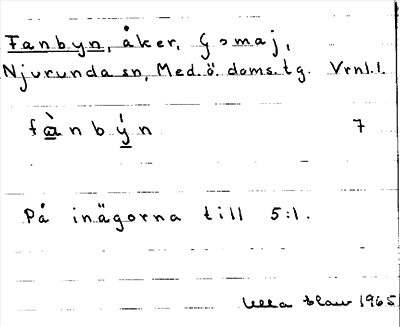 Fanbyn, åker, Gomaj,
Njurunda sn, Med.ö. doms.tg. Vrnl.l.
fànbýn 7
På inägorna till 5:1.
Ulla 1965